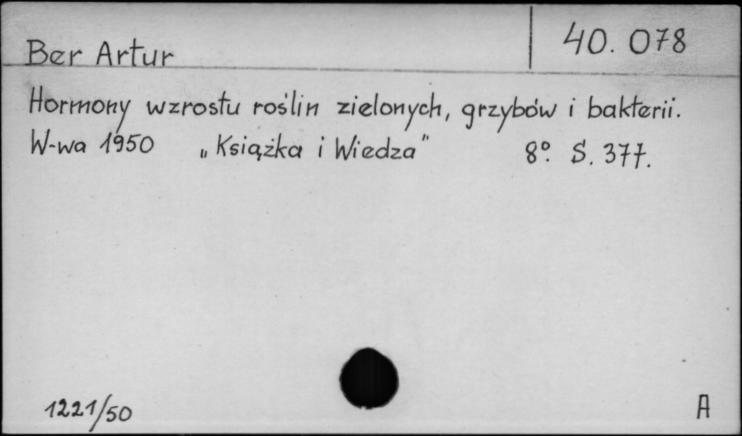 Ber Artur
40.078
Hormony wzrostu roślin zielonych, grzybów i bakterii.
W-wa 1950 „Książka i Wiedza" 8° S. 377.
1221/50
A